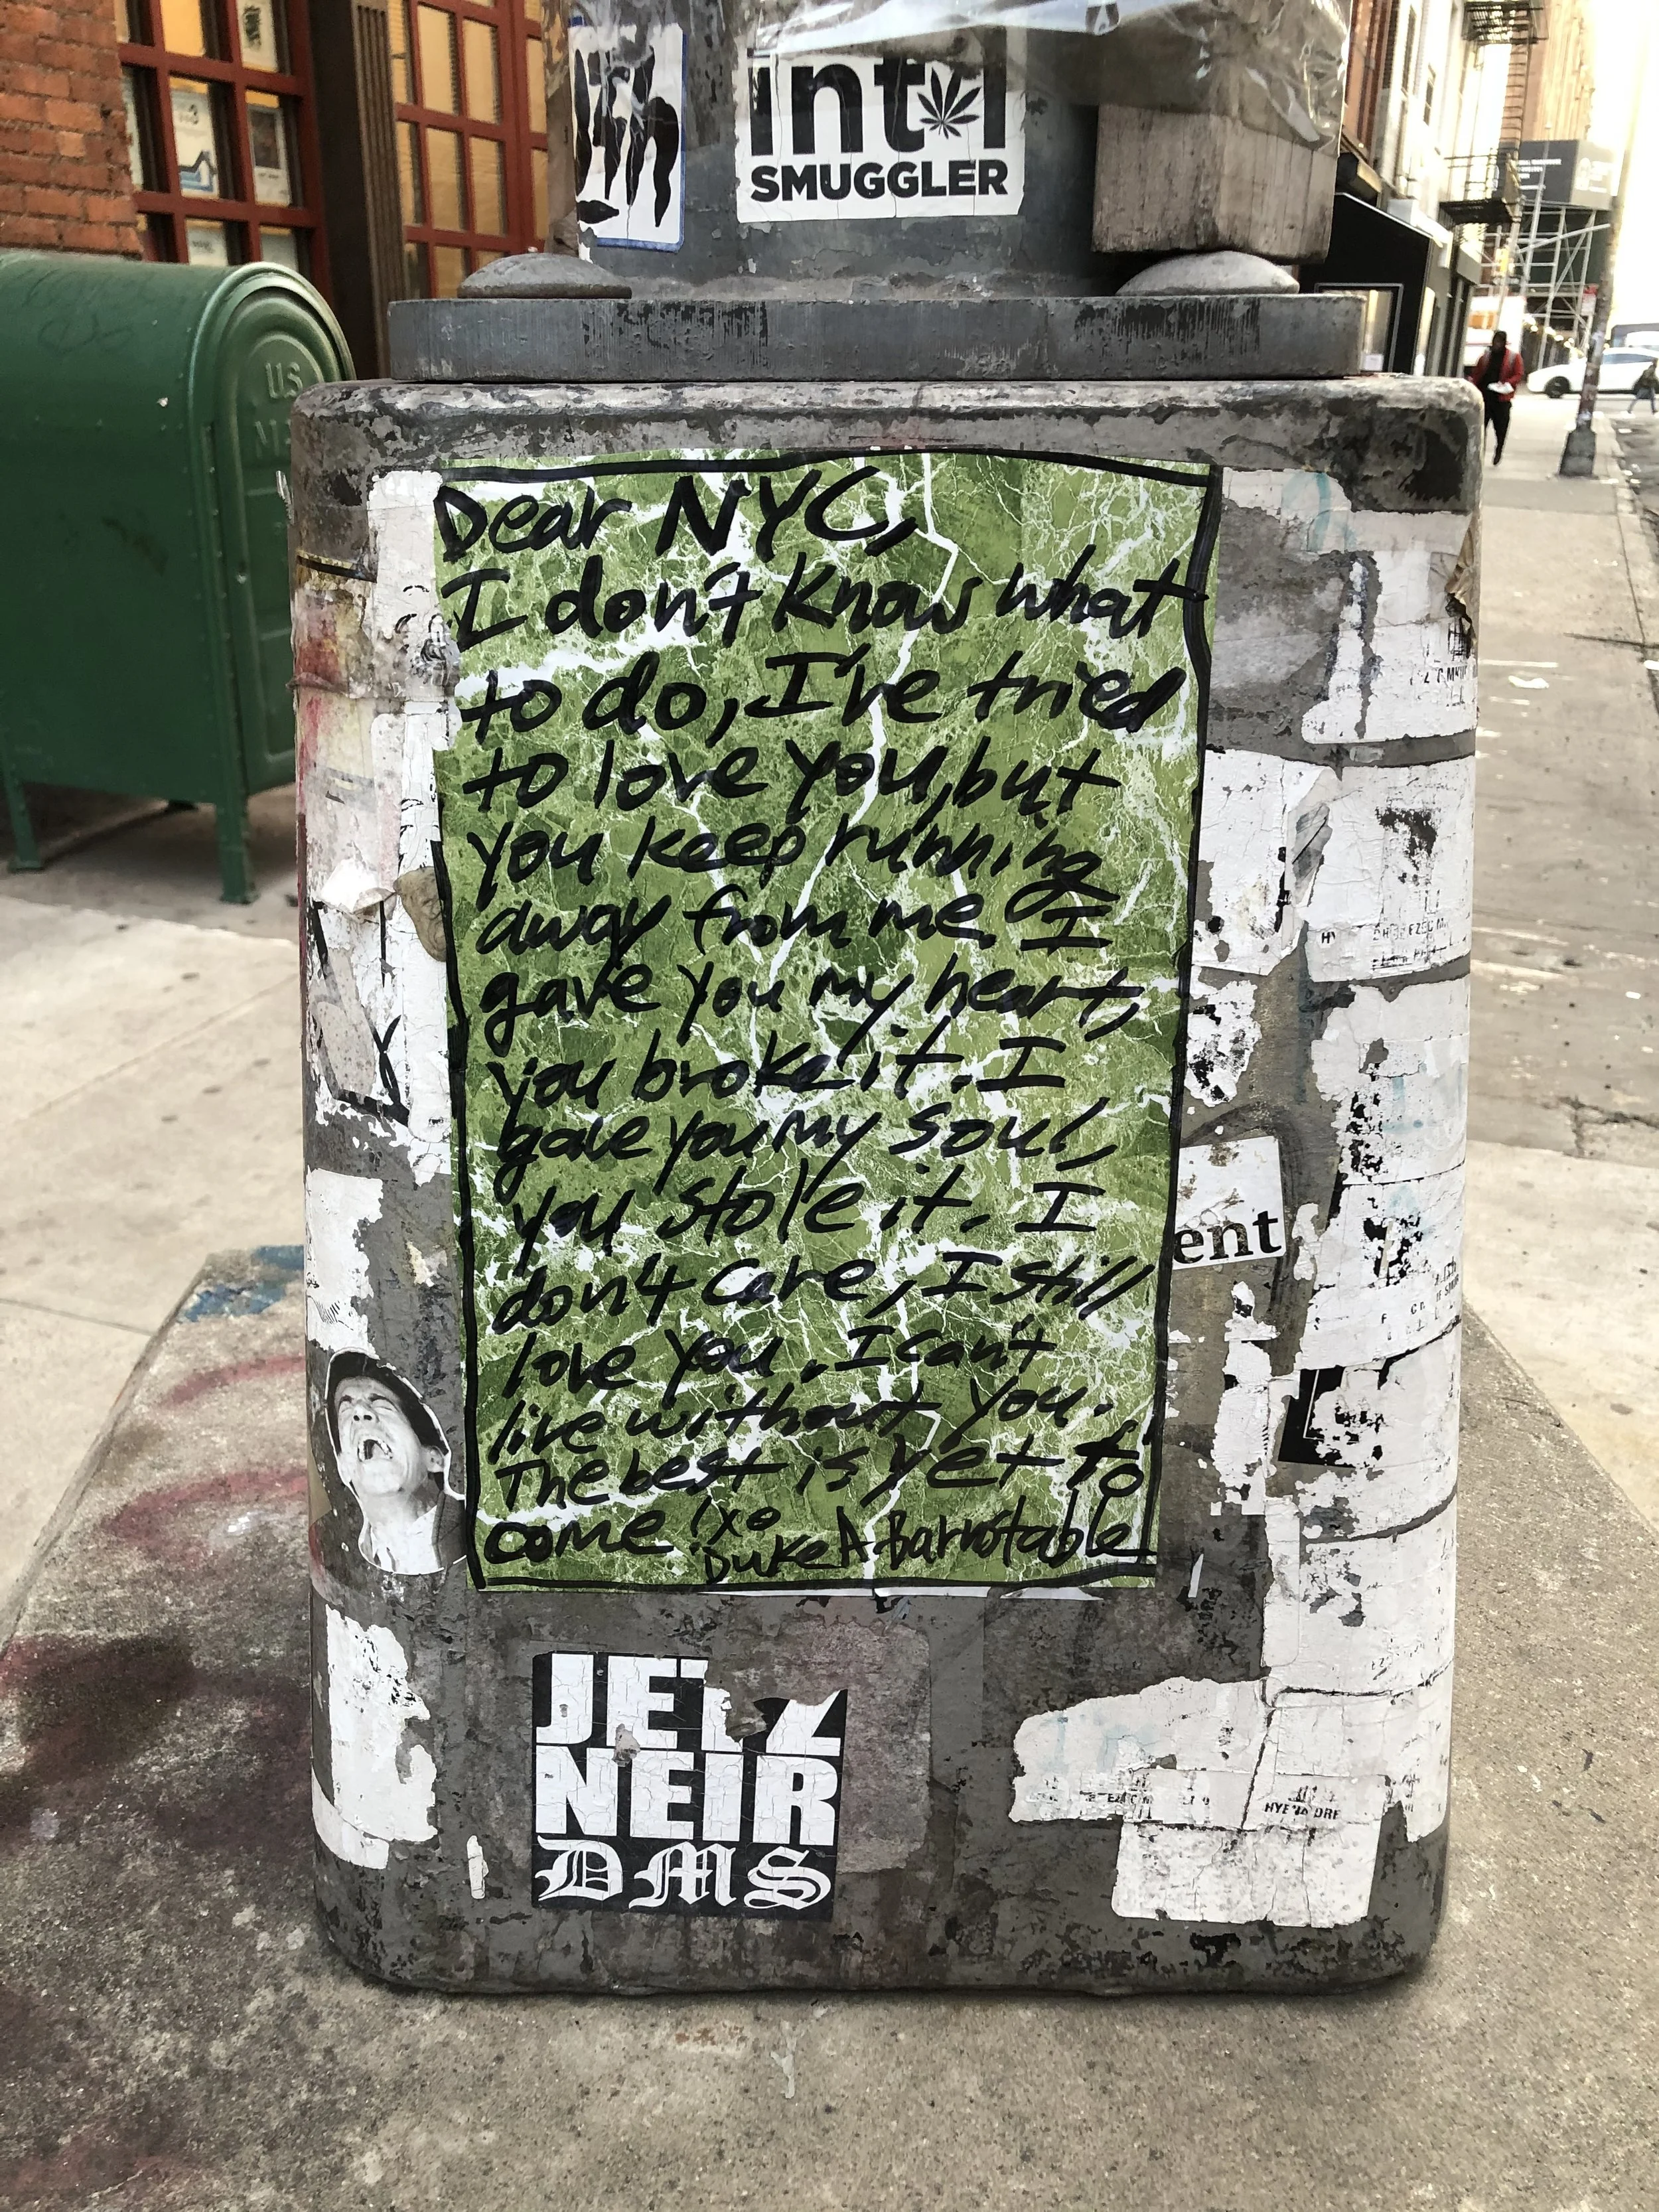 int'l
SMUGGLER
US
Dear NYC,
I don't know what
to do, I've tried
to love you, but
you keep running
away from me. I
gave you my heart,
you broke it. I
gave you my soul,
you stole it. I
don't care, I still
love you. I can't
live without you.
The best is yet to
come! xo
Duke A. Barnstable
ent
NEIR
DMS